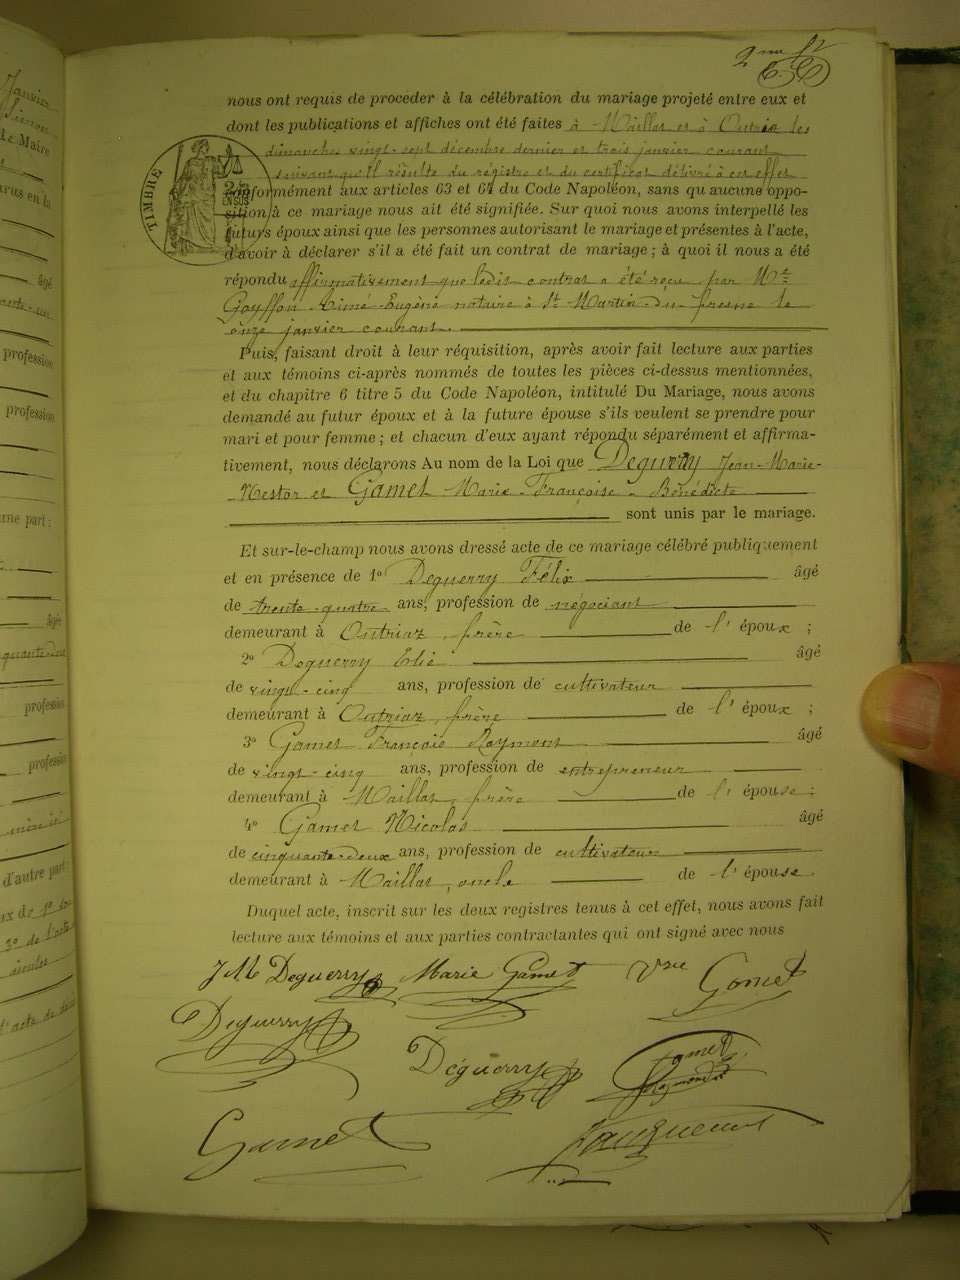 2me ft
nous ont requis de proceder à la célébration du mariage projeté entre eux et
dont les publications et affiches ont été faites à Maillat et à Outriaz les
dimanches vingt-sept décembre dernier et trois janvier courant
suivant qu'il résulte du registre et du certificat délivré à cet effet
conformément aux articles 63 et 64 du Code Napoléon, sans qu'aucune oppo-
sition à ce mariage nous ait été signifiée. Sur quoi nous avons interpellé les
futurs époux ainsi que les personnes autorisant le mariage et présentes à l'acte,
d'avoir à déclarer s'il a été fait un contrat de mariage ; à quoi il nous a été
répondu affirmativement que ledit contrat a été reçu par Me
Goyffon Aimé-Eugène notaire à St Martin du fresne le
onze janvier courant.
Puis, faisant droit à leur réquisition, après avoir fait lecture aux parties
et aux témoins ci-après nommés de toutes les pièces ci-dessus mentionnées,
et du chapitre 6 titre 5 du Code Napoléon, intitulé Du Mariage, nous avons
demandé au futur époux et à la future épouse s'ils veulent se prendre pour
mari et pour femme ; et chacun d'eux ayant répondu séparément et affirma-
tivement, nous déclarons Au nom de la Loi que Deguerry Jean-Marie-
Nestor et Gamet Marie-Françoise-Bénédicte
sont unis par le mariage.
Et sur-le-champ nous avons dressé acte de ce mariage célébré publiquement
et en présence de 1o Deguerry Félix âgé
de trente-quatre ans, profession de négociant
demeurant à Outriaz, frère de l'époux ;
2o Deguerry Elie âgé
de vingt-cinq ans, profession de cultivateur
demeurant à Outriaz, frère de l'époux ;
3o Gamet François Raymont âgé
de vingt-cinq ans, profession de entrepreneur
demeurant à Maillat, frère de l'épouse ;
4o Gamet Nicolas âgé
de cinquante-deux ans, profession de cultivateur
demeurant à Maillat, oncle de l'épouse.
Duquel acte, inscrit sur les deux registres tenus à cet effet, nous avons fait
lecture aux témoins et aux parties contractantes qui ont signé avec nous
J M Deguerry Marie Gamet Vve Gomet
Deguerry Déguerry Gamet
Gamet
TIMBRE
Janvier
Maire
âgé
profession
profession
une part :
âgé
profession
profession
d'autre part